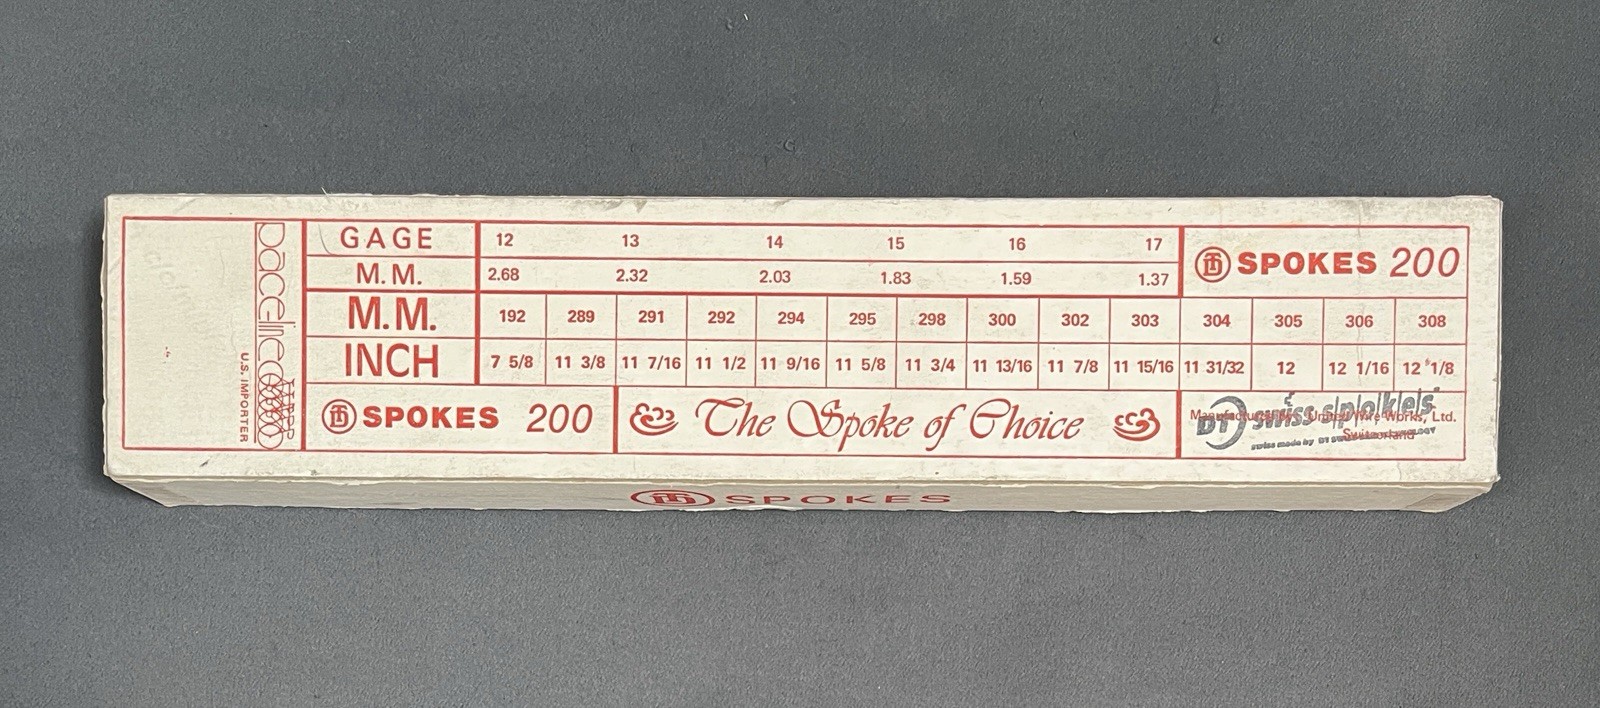 GAGE 12 13 14 15 16 17
M.M. 2.68 2.32 2.03 1.83 1.59 1.37
DT SPOKES 200
M.M. 192 289 291 292 294 295 298 300 302 303 304 305 306 308
INCH 7 5/8 11 3/8 11 7/16 11 1/2 11 9/16 11 5/8 11 3/4 11 13/16 11 7/8 11 15/16 11 31/32 12 12 1/16 12 1/8
DT SPOKES 200
The Spoke of Choice
Manufactured by: United Wire Works, Ltd.
Switzerland
DT swiss spokes
swiss made by DT
U.S. IMPORTER
DT SPOKES